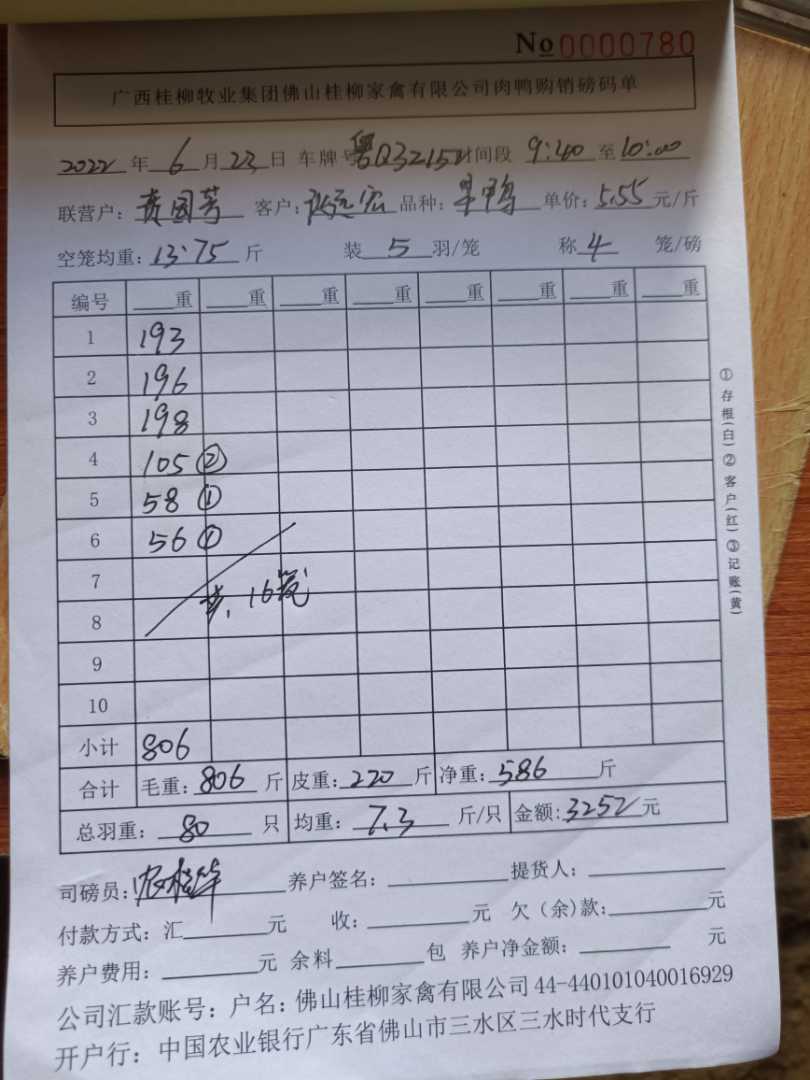 No 0000780
广西桂柳牧业集团佛山桂柳家禽有限公司肉鸭购销磅码单
2022 年 6 月 23 日 车牌号 粤Q32152 时间段 9:40 至 10:00
联营户: 客户: 品种: 鸭 单价: 5.55 元/斤
空笼均重: 13.75 斤 装 5 羽/笼 称 4 笼/磅
编号 重 重 重 重 重 重 重 重
1 193
2 196
3 198
4 105 ②
5 58 ①
6 56 ①
7
8 共, 16笼
9
10
小计 806
合计 毛重: 806 斤 皮重: 220 斤 净重: 586 斤
总羽重: 80 只 均重: 7.3 斤/只 金额: 3252 元
司磅员: 养户签名: 提货人:
付款方式: 汇 元 收: 元 欠（余）款: 元
养户费用: 元 余料 包 养户净金额: 元
公司汇款账号: 户名: 佛山桂柳家禽有限公司 44-440101040016929
开户行: 中国农业银行广东省佛山市三水区三水时代支行
①存根(白)②客户(红)③记账(黄)